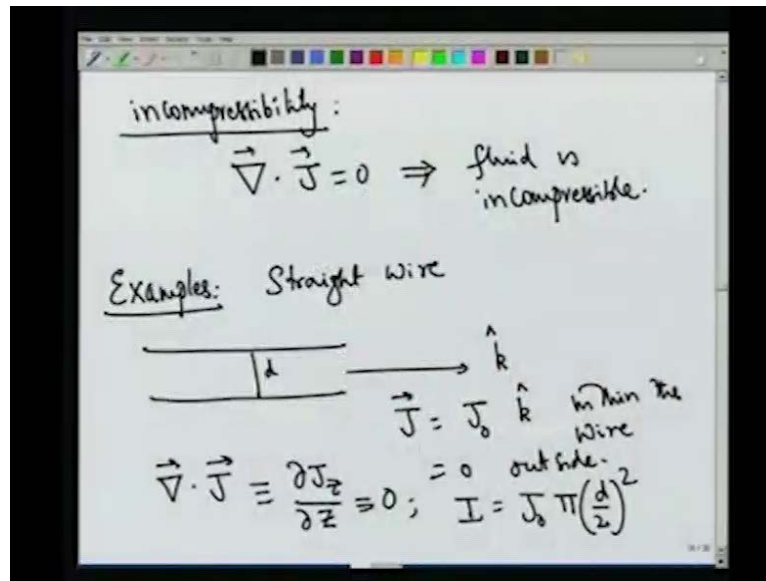 incompressibility :
∇⃗ · J⃗ = 0 ⇒ fluid is
incompressible.
Examples: Straight wire
d
k̂
J⃗ = J₀ k̂ within the
wire
= 0 outside.
∇⃗ · J⃗ ≡ ∂J_z/∂z = 0 ; I = J₀ π(d/2)²